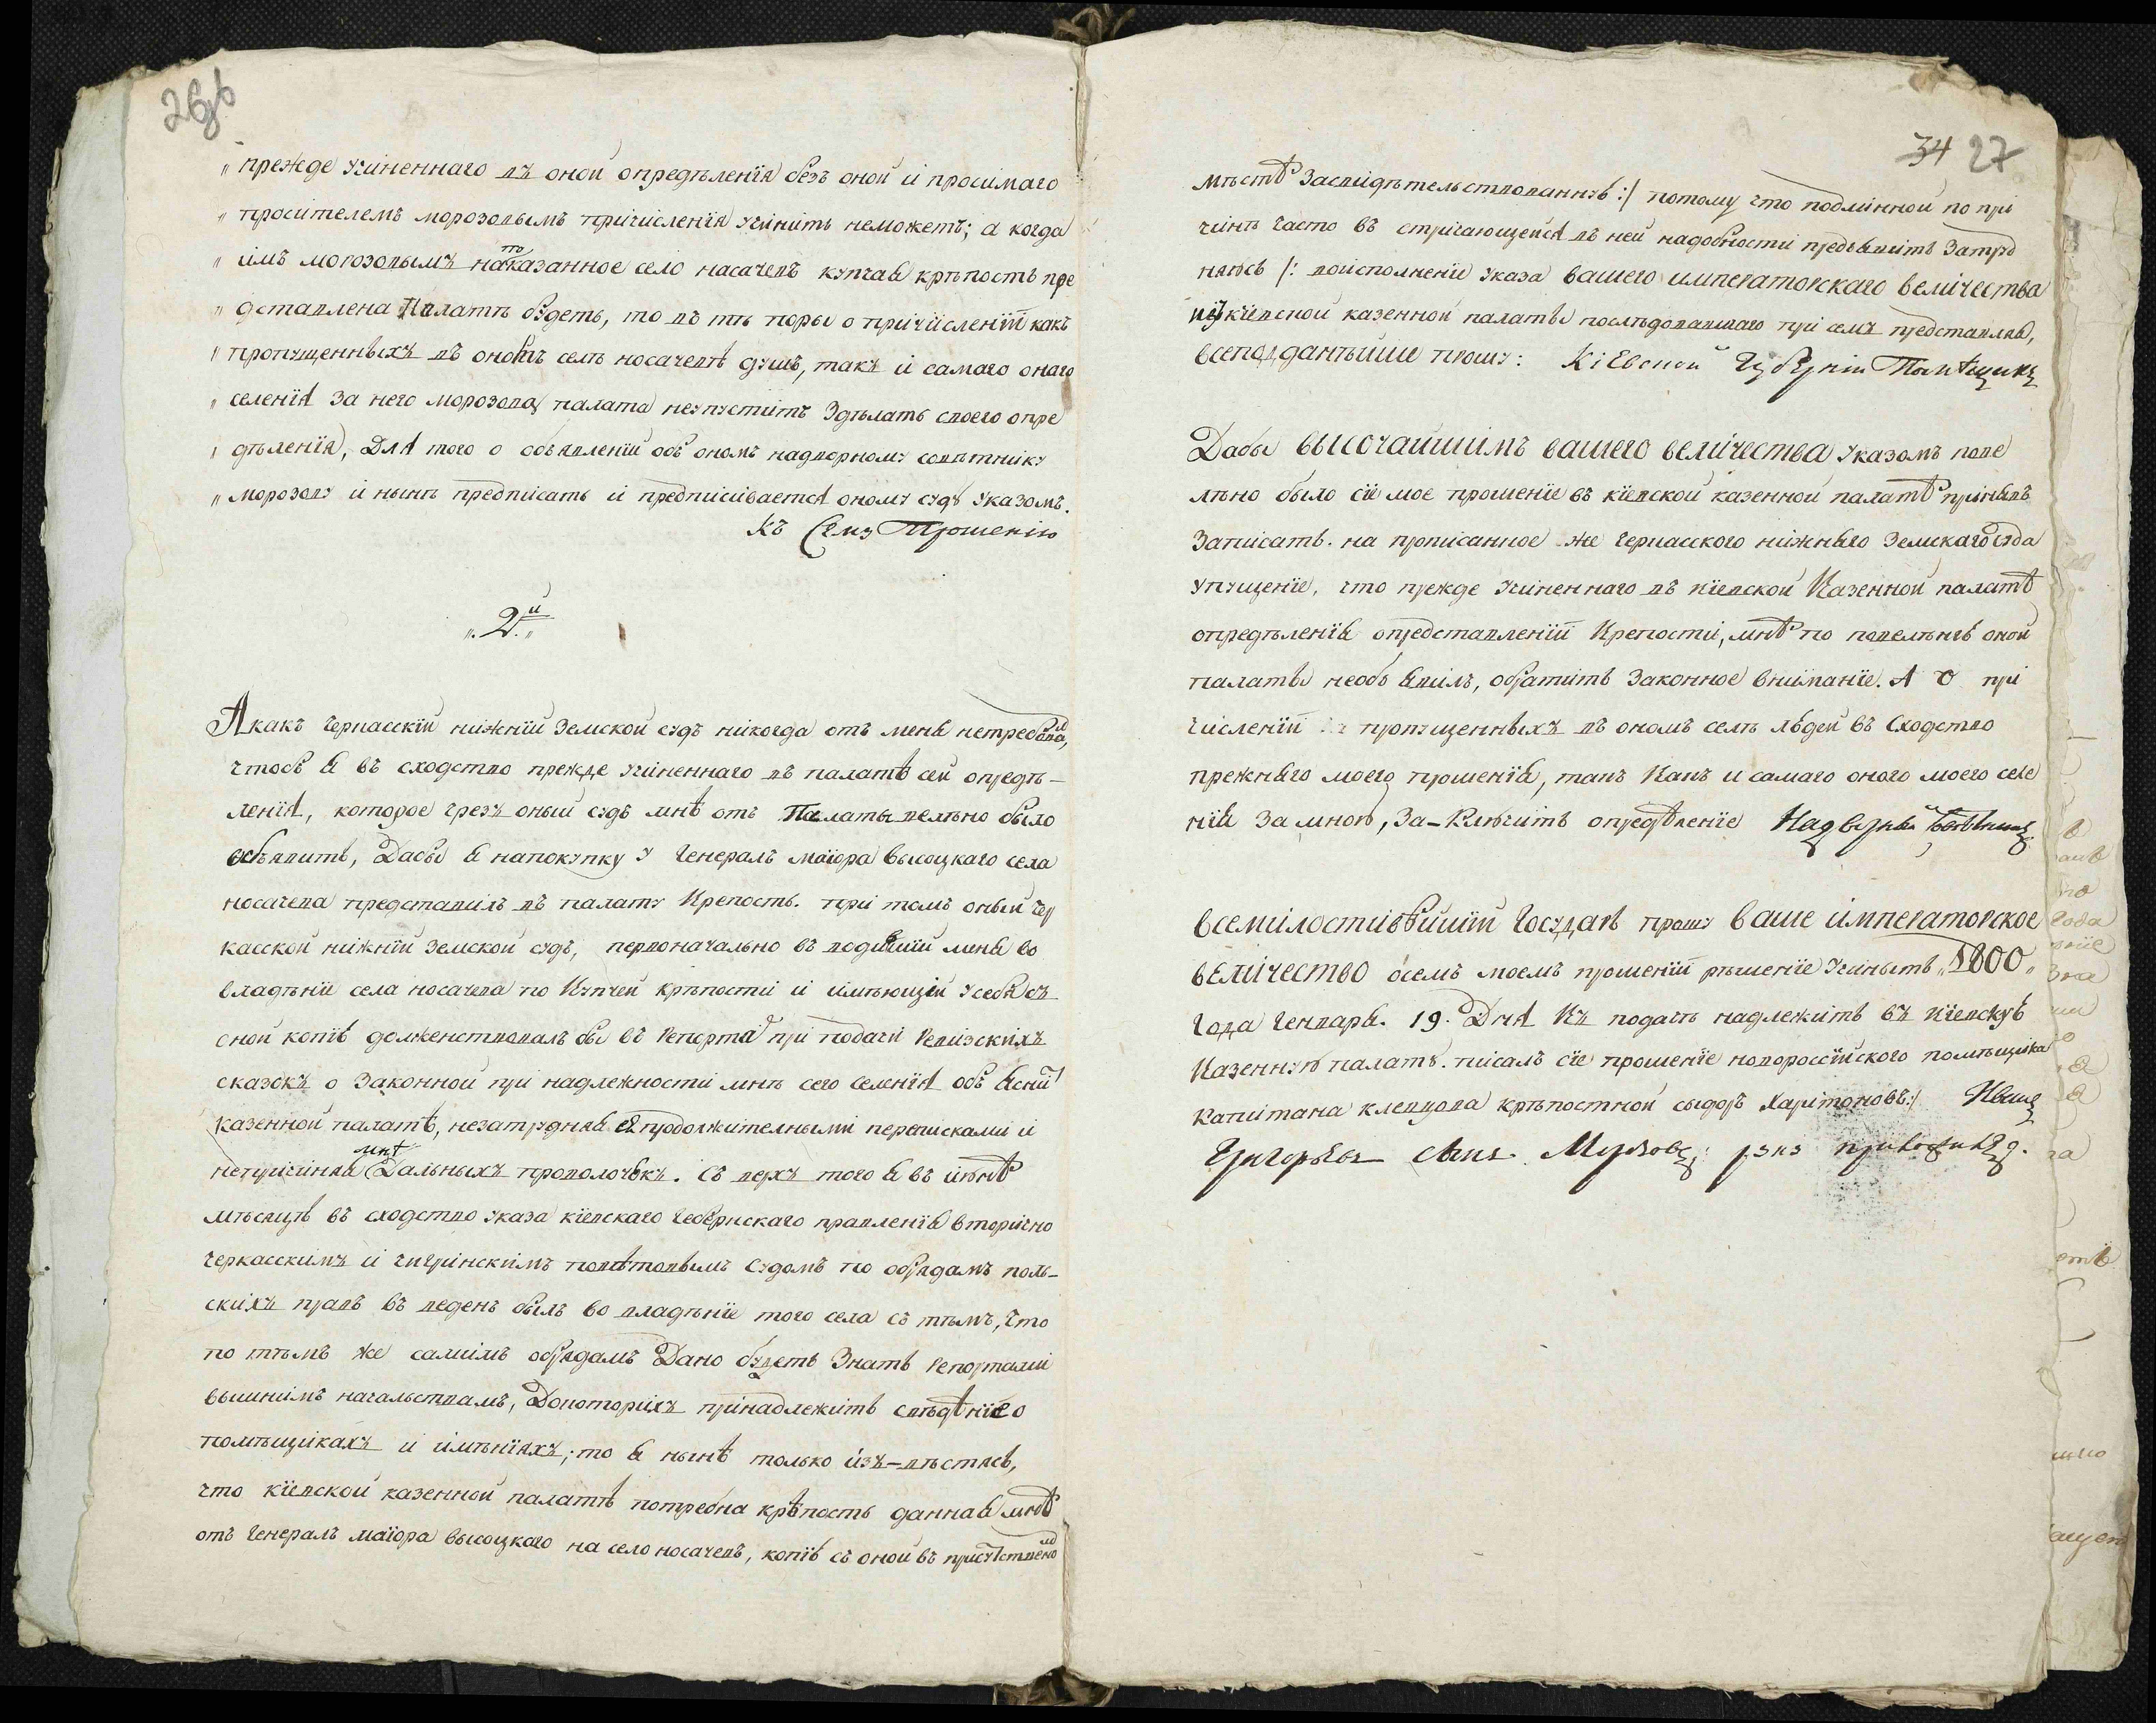 26об
„прежде учиненнаго въ оной определѣнія безъ оной и просимаго
„просителемъ морозовымъ причисленія учинить неможетъ; а когда
„имъ морозовымъ на то казанное село насачевъ купчая крѣпость пре
„дставлена Палатѣ будетъ, то въ тѣ поры о причисленіи какъ
„пропущенныхъ въ ономъ селѣ носачевѣ душъ, такъ и самаго онаго
„селенія за него морозова палата неупуститъ здѣлать своего опре
„дѣленія, Для того о объявленіи объ ономъ надворному совѣтнику
„морозову и нынѣ предписать и предписивается оному суду указомъ.
къ Сему Прошенію
„2.й„
А какъ черкасскій нижній земской судъ никогда отъ меня нетребовалъ,
чтобъ я въ сходство прежде учиненнаго въ палатѣ сей опредѣ-
ленія, которое чрезъ оный судъ мнѣ отъ Палаты велѣно было
объявить, Дабы я напокупку у генералъ маіора высоцкаго села
носачева представилъ въ палату Крепость. при томъ оный чер
касской нижній земской судъ, первоначально въ водившій меня во
владѣніи села носачева по Купчей крѣпости и имѣющій усебя съ
оной копію долженствовалъ бы въ репортѣ при подачи ревизскихъ
сказокъ о законной при надлежности мнѣ сего селенія объ ясни
казенной палатѣ, незатрудняя ея продолжителными переписками и
непричиняя мнѣ Дальныхъ проволочекъ. Съ верхъ того я въ іюнѣ
мѣсяцѣ въ сходство указа кіевскаго губернскаго правленія вторично
черкасскимъ и чигринскимъ поветовымъ судомъ по обрядамъ поль-
скихъ правъ въ веденъ былъ во владѣніе того села съ тѣмъ, что
по тѣмъ же самимъ обрядамъ Дано будетъ знать репортами
вышнимъ начальствамъ, Докоторихъ принадлежитъ свѣдѣніе о
помѣщикахъ и имѣніяхъ; то я нынѣ только изъ-вѣстясь,
что кіевской казенной палатѣ потребна крѣпость данная мнѣ
отъ генералъ маіора высоцкаго на село носачевъ, копію съ оной въ присутственомъ
34 27
мѣстѣ засвидѣтельствованную :/ потому что подлинной по при
чинѣ часто въ стричающейся въ ней надобности предъявить затруд
няюсь /: воисполненіе указа вашего императорскаго величества
изъ кіевской казенной палаты послѣдовавшаго при семъ представляя,
всеподданѣйше прошу: Кіевской Губерніи Помѣщикъ
Дабы высочайшимъ вашего величества указомъ пове
лѣно было сіе мое прошеніе въ кіевской казенной палатѣ принявъ
записать. на прописанное же черкасского нижняго земскаго суда
упущеніе, что прежде учиненнаго въ кіевской Казенной палатѣ
опредѣленія опредставленіи Крепости, мнѣ по повелѣнію оной
палаты необъявилъ, обратить законное вниманіе. А о при
численіи пропущенныхъ въ ономъ селѣ людей въ сходство
прежняго моего прошенія, такъ Какъ и самаго оного моего селе
нія за мною, за-Ключить опредѣленіе Надворный Советникъ
всемілостивѣйшій государь прошу ваше императорское
величество осемъ моемъ прошеніи рѣшеніе учинить „1800„
года генваря. 19. Дня Къ подачѣ надлежитъ въ кіевскую
Казенную палату. писалъ сіе прошеніе новороссійского помѣщика
капитана клевцова крѣпостной сыдоръ харитоновъ:/ Иванъ
Григорьевъ сынъ Морозовъ руку приложилъ.